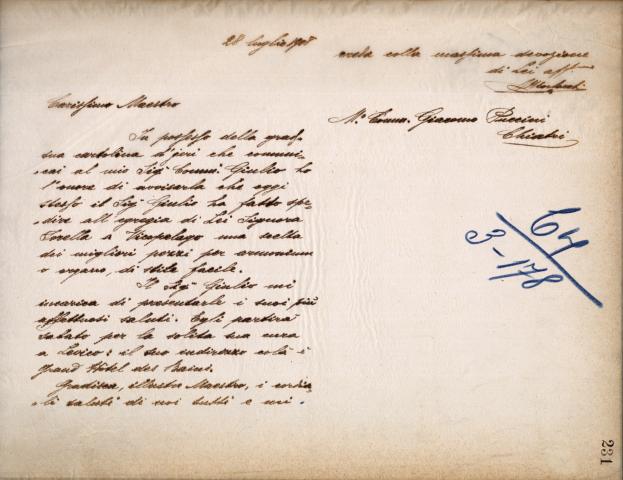 28 luglio 1908
Carissimo Maestro
In possesso della grad.
sua cartolina d'jeri che comuni-
cai al mio Sigr Comm. Giulio ho
l'onore di avvisarla che oggi
stesso il Sigr Giulio ha fatto spe-
dire all'egregia di Lei Signora
Sorella a Vicopelago una scelta
dei migliori pezzi per armonium
o organo, di stile facile.
Il Sigr Giulio mi
incarica di presentarle i suoi più
affettuosi saluti. Egli partirà
sabato per la solita sua cura
a Levico: il suo indirizzo colà è
Grand Hôtel des Bains.
Gradisca, illustre Maestro, i cordia-
li saluti di noi tutti e mi
creda colla massima devozione
di Lei aff.mo
M.o Comm. Giacomo Puccini
Chiatri
64
3-178
231